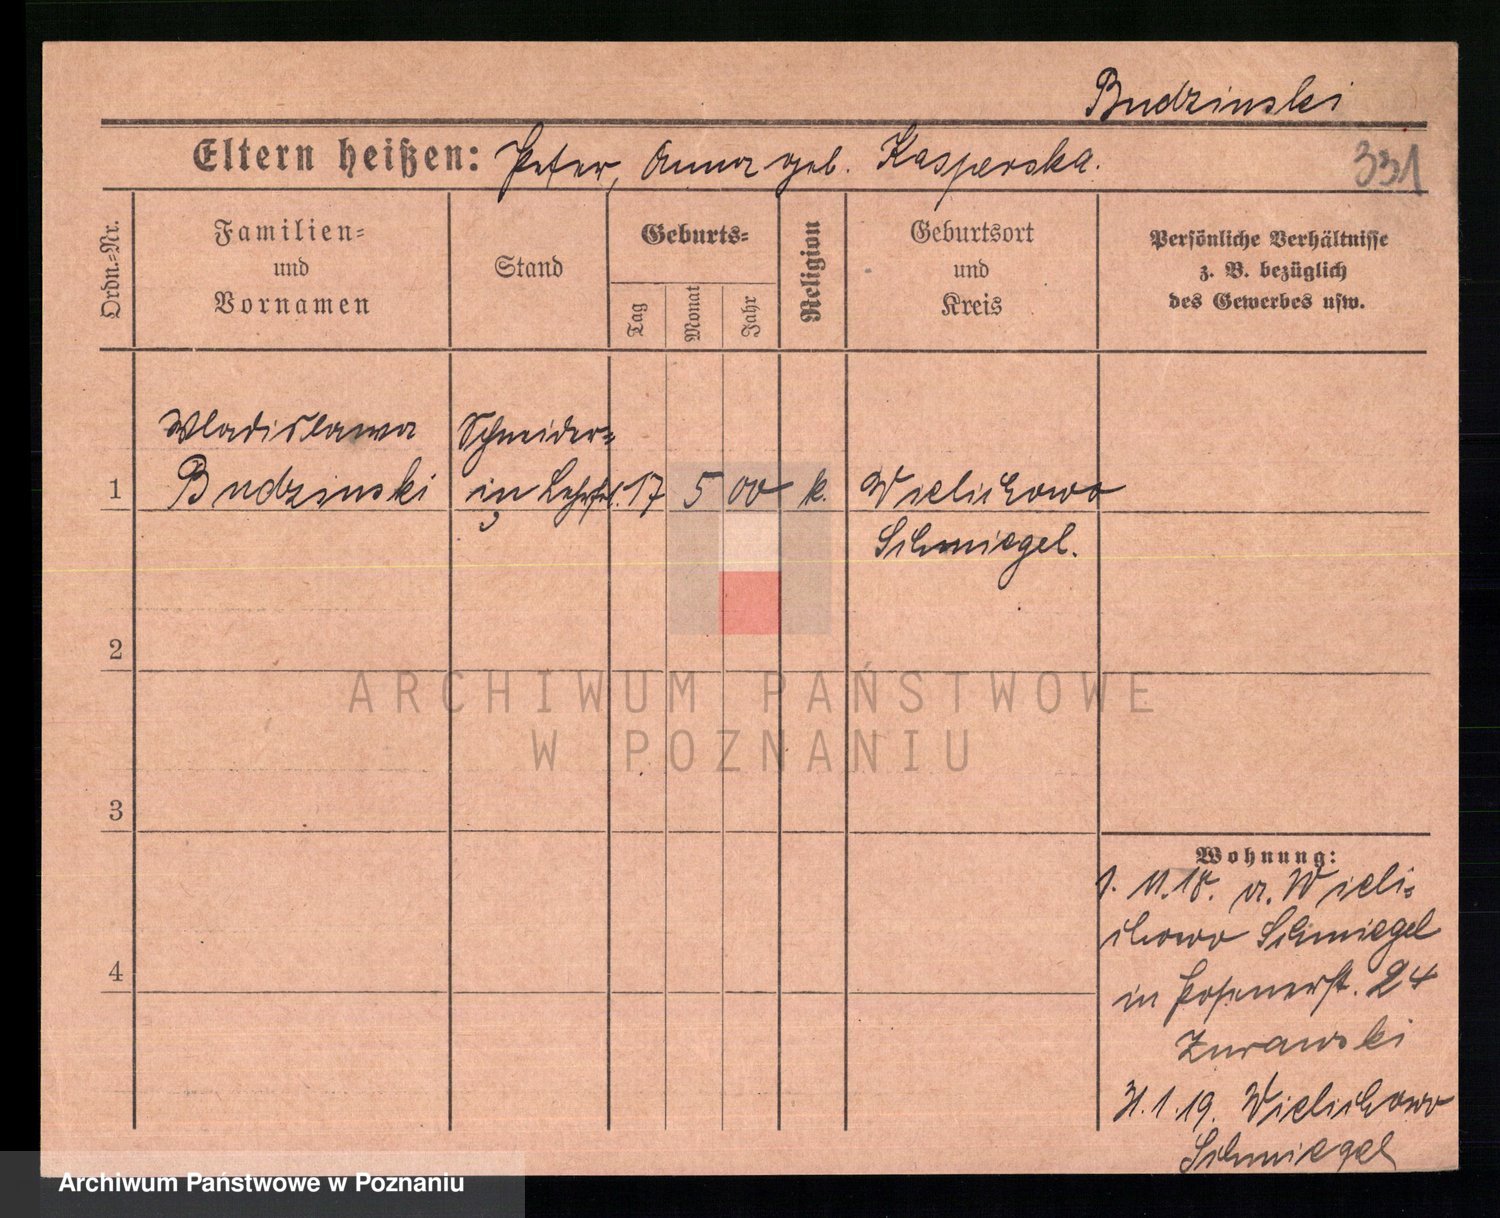 Budzinski
Eltern heißen: Peter, Anna geb. Kasperska.
331
Ordn.-Nr.
Familien-
und
Vornamen
Stand
Geburts-
Tag
Monat
Jahr
Religion
Geburtsort
und
Kreis
Persönliche Verhältnisse
z. B. bezüglich
des Gewerbes usw.
Wladislawa Schneider-
1 Budzinski in Lehrfrl. 17 5 00 k. Wielichowo
Schmiegel.
2
3
4
Wohnung:
1. 11. 18. a. Wieli-
chowo Schmiegel
in Posenerst. 24
Zurawski
31. 1. 19. Wielichowo
Schmiegel
ARCHIWUM PAŃSTWOWE
W POZNANIU
Archiwum Państwowe w Poznaniu